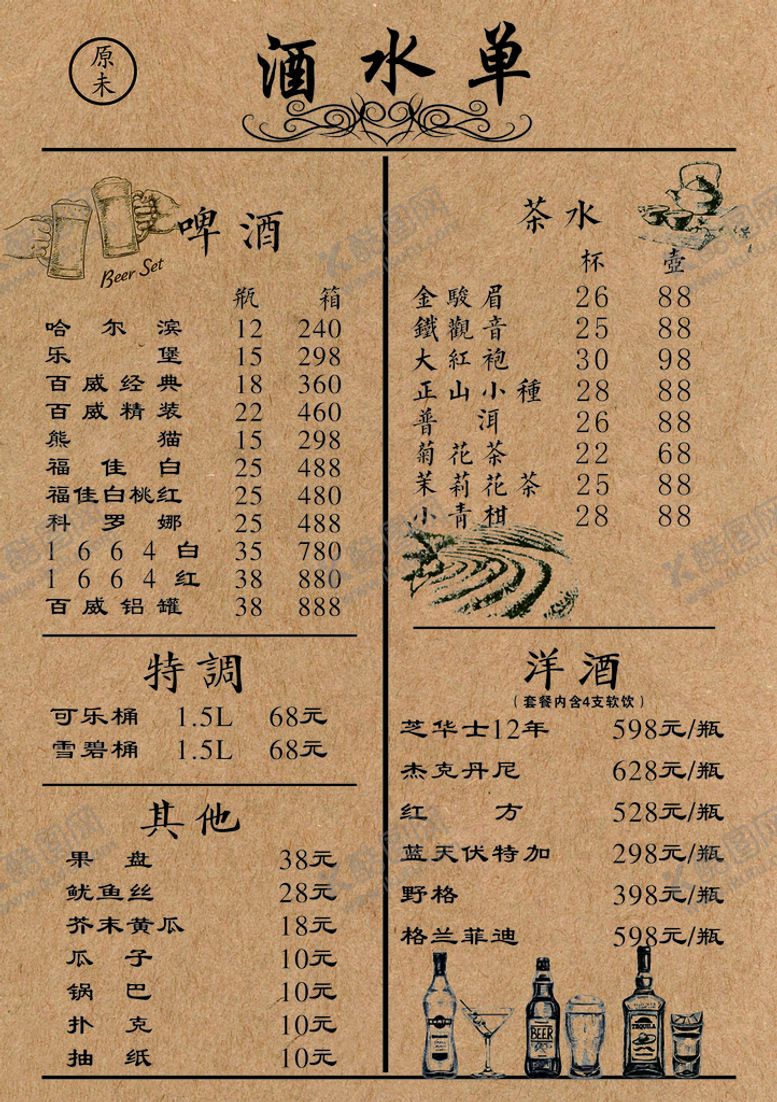 原未
酒水单
啤酒
Beer Set
瓶 箱
哈尔滨 12 240
乐堡 15 298
百威经典 18 360
百威精装 22 460
熊猫 15 298
福佳白 25 488
福佳白桃红 25 480
科罗娜 25 488
1664白 35 780
1664红 38 880
百威铝罐 38 888
特調
可乐桶 1.5L 68元
雪碧桶 1.5L 68元
其他
果盘 38元
鱿鱼丝 28元
芥末黄瓜 18元
瓜子 10元
锅巴 10元
扑克 10元
抽纸 10元
茶水
杯 壶
金駿眉 26 88
鐵觀音 25 88
大紅袍 30 98
正山小種 28 88
普洱 26 88
菊花茶 22 68
茉莉花茶 25 88
小青柑 28 88
洋酒
（套餐内含4支软饮）
芝华士12年 598元/瓶
杰克丹尼 628元/瓶
红方 528元/瓶
蓝天伏特加 298元/瓶
野格 398元/瓶
格兰菲迪 598元/瓶
BEER
TEQUILA